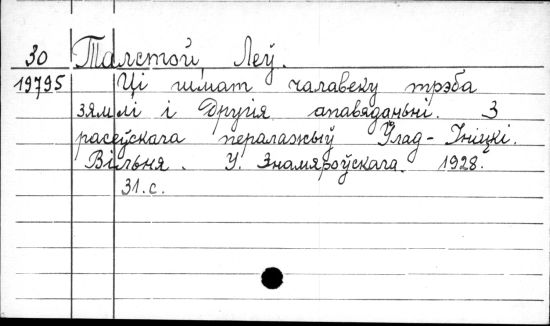 30 Талстой, Леў.
19795 Ці шмат чалавеку трэба
зямлі і Другія апавяданьні. З
расеўскага пералажыў Ўлад-Ініцкі.
Вільня. У. Знамяроўскага. 1928.
31.с.